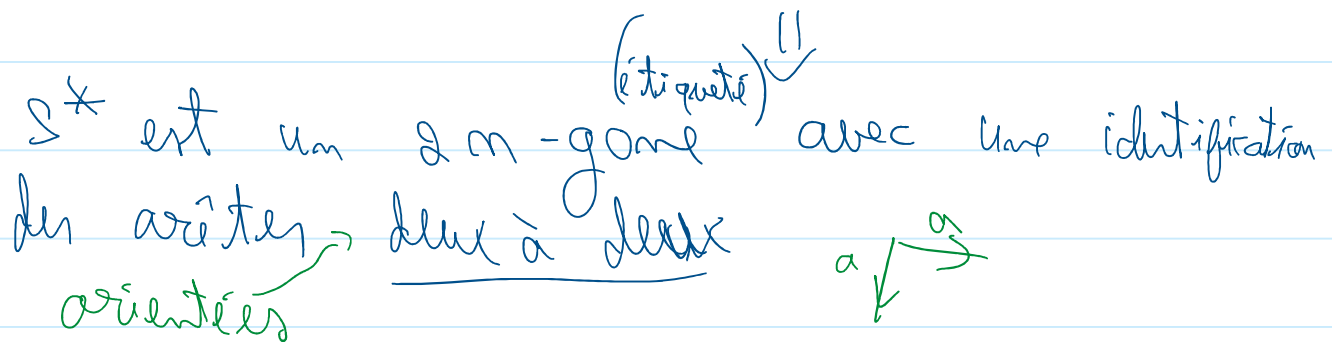 (étiqueté) !!
S* est un 2n-gone avec une identification
des arêtes deux à deux a
a
orientées